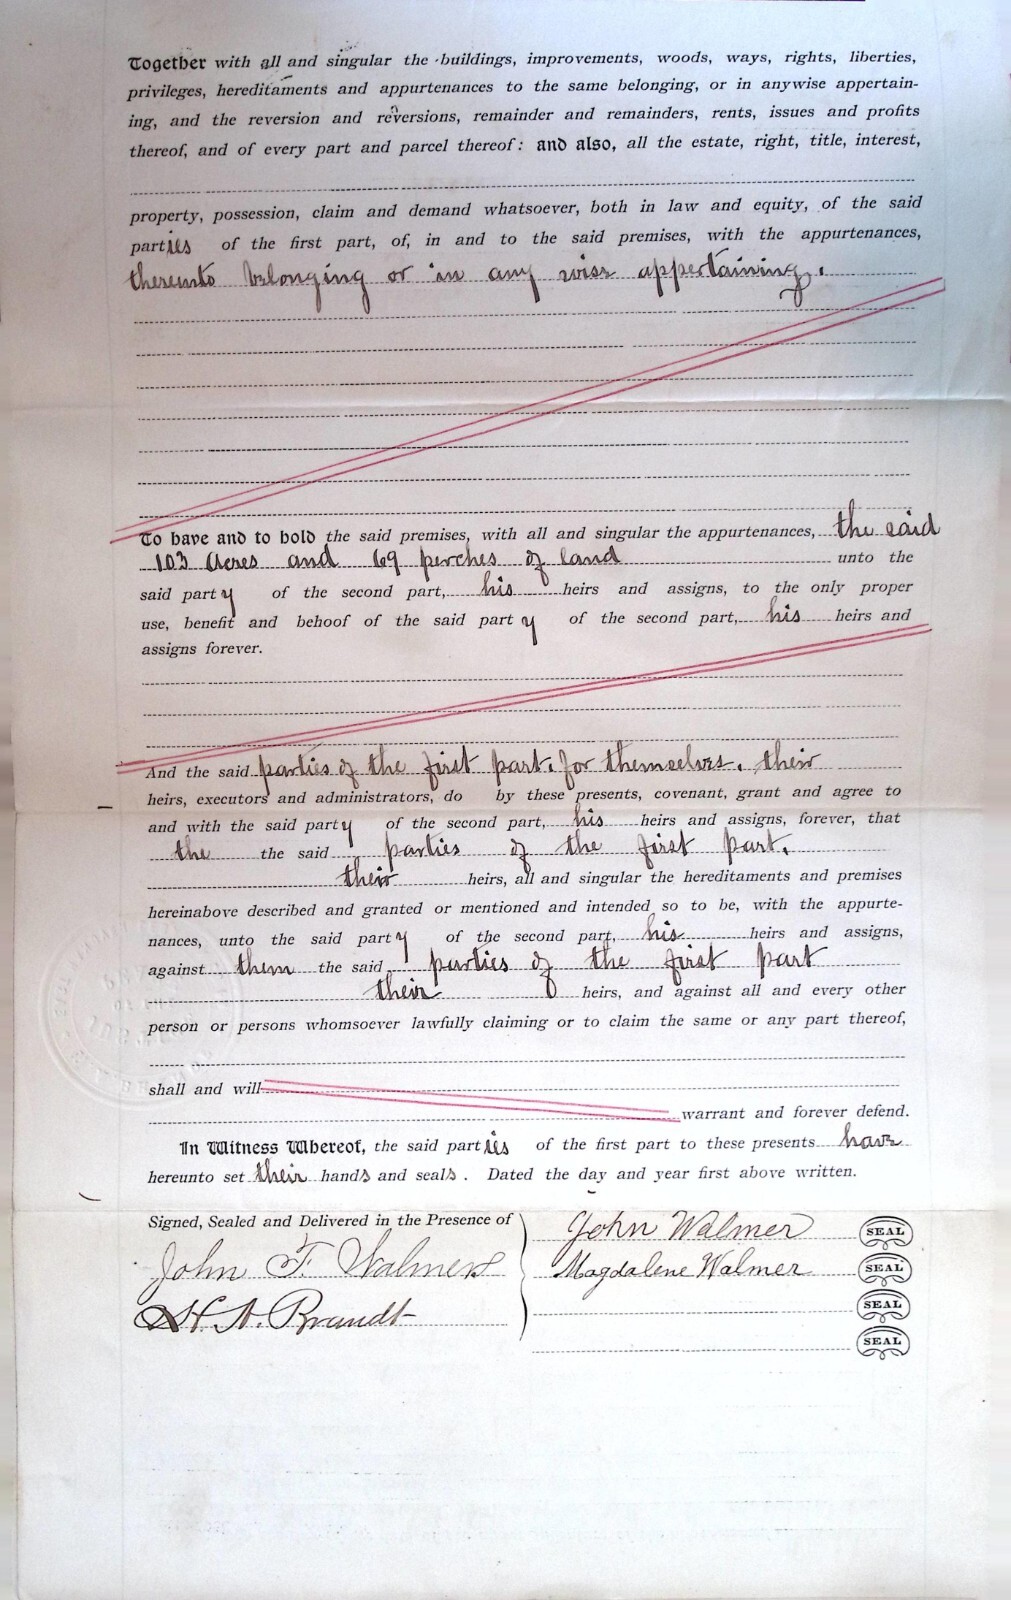 Together with all and singular the buildings, improvements, woods, ways, rights, liberties,
privileges, hereditaments and appurtenances to the same belonging, or in anywise appertain-
ing, and the reversion and reversions, remainder and remainders, rents, issues and profits
thereof, and of every part and parcel thereof: and also, all the estate, right, title, interest,
property, possession, claim and demand whatsoever, both in law and equity, of the said
parties of the first part, of, in and to the said premises, with the appurtenances,
thereunto belonging or in any wise appertaining.
To have and to hold the said premises, with all and singular the appurtenances, the said
103 Acres and 69 perches of land unto the
said party of the second part, his heirs and assigns, to the only proper
use, benefit and behoof of the said party of the second part, his heirs and
assigns forever.
And the said parties of the first part. for themselves. their
heirs, executors and administrators, do by these presents, covenant, grant and agree to
and with the said party of the second part, his heirs and assigns, forever, that
the the said parties of the first part.
their heirs, all and singular the hereditaments and premises
hereinabove described and granted or mentioned and intended so to be, with the appurte-
nances, unto the said party of the second part, his heirs and assigns,
against them the said parties of the first part
their heirs, and against all and every other
person or persons whomsoever lawfully claiming or to claim the same or any part thereof,
shall and will
warrant and forever defend.
In Witness Whereof, the said parties of the first part to these presents have
hereunto set their hands and seals. Dated the day and year first above written.
Signed, Sealed and Delivered in the Presence of
John Walmer SEAL
John F. Walmer
Magdalene Walmer SEAL
H. A. Brandt
SEAL
SEAL